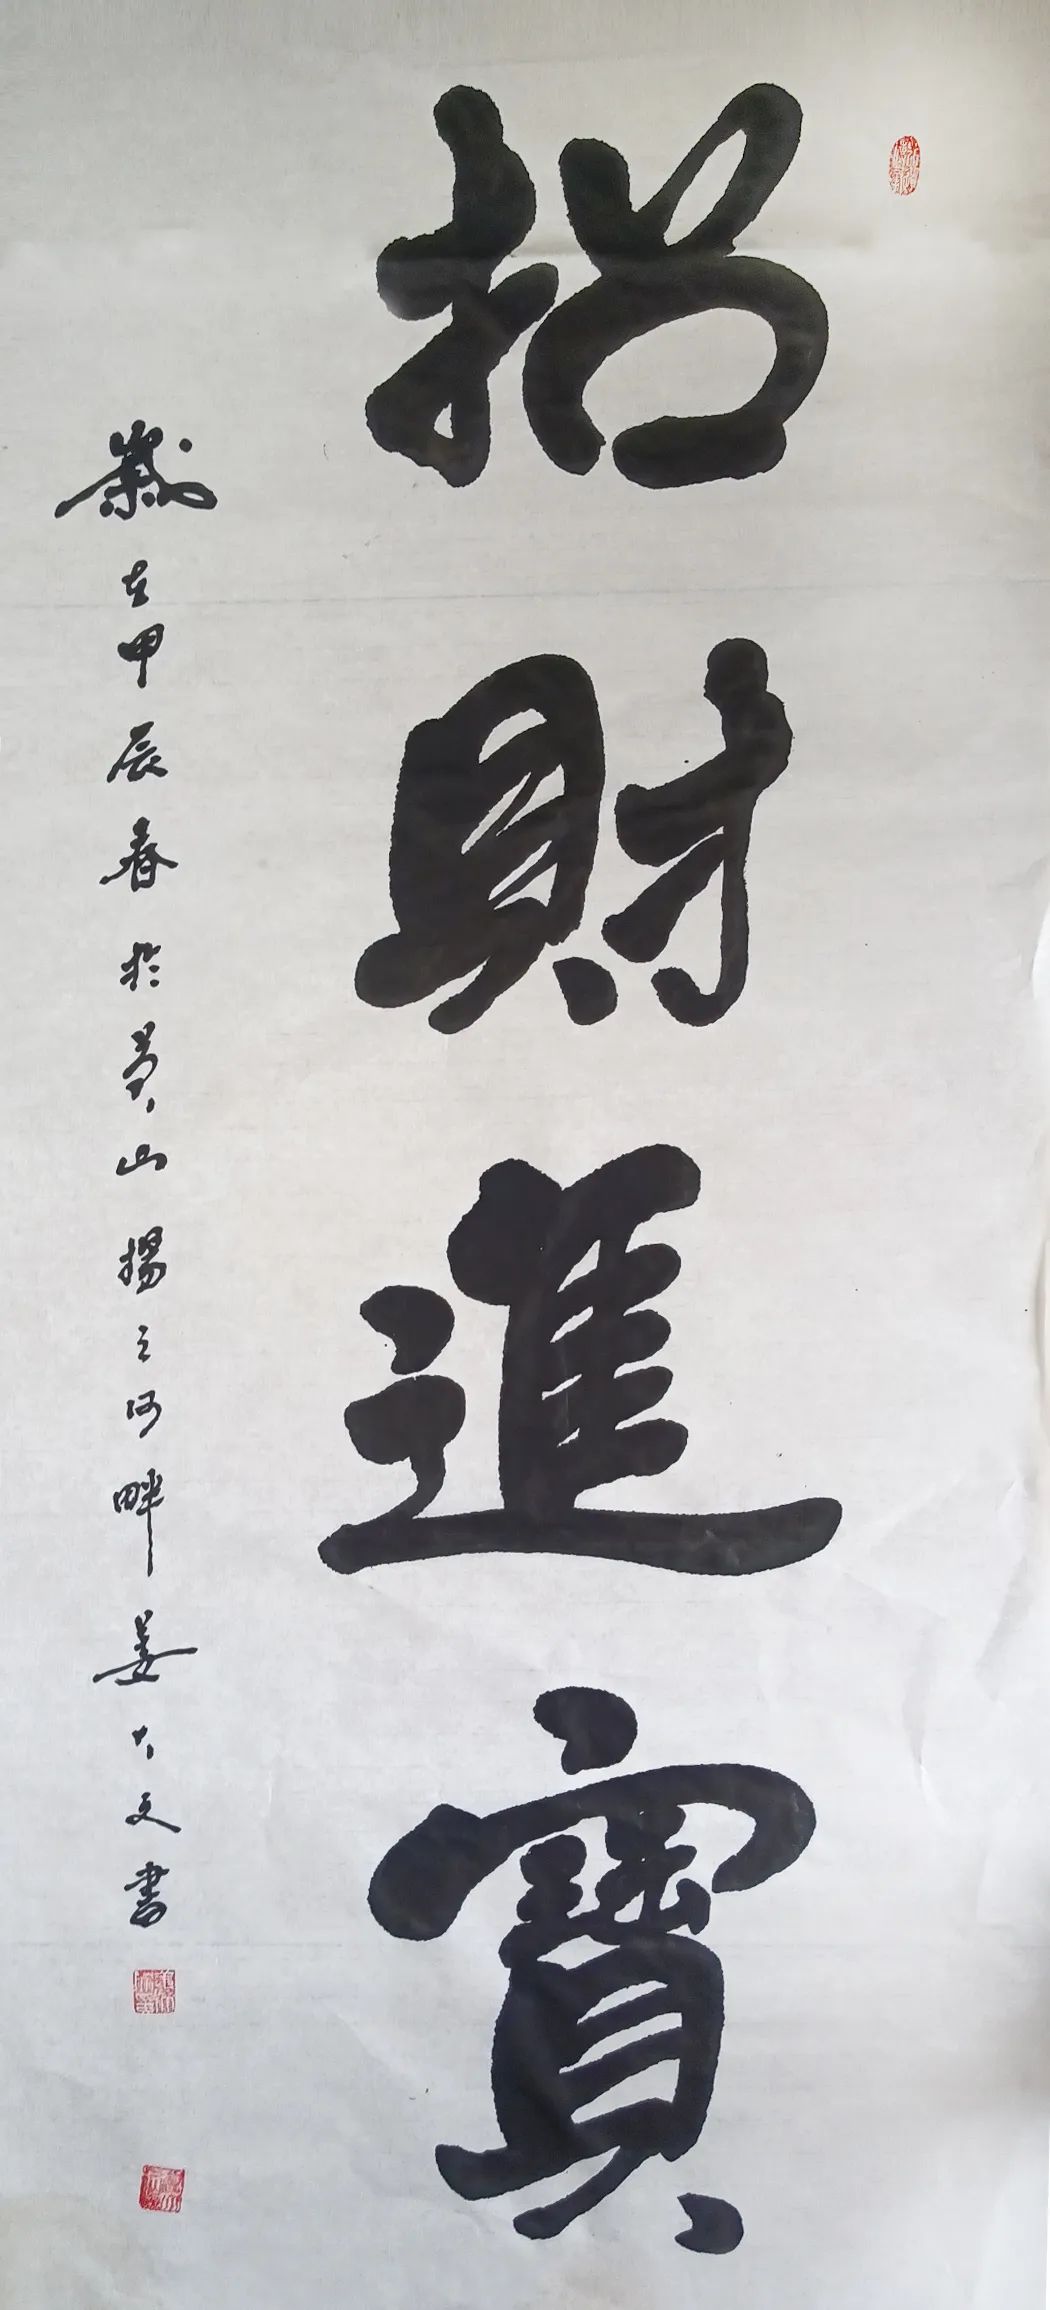 招財進寶
歲在甲辰春於黃山揚之河畔姜大文書